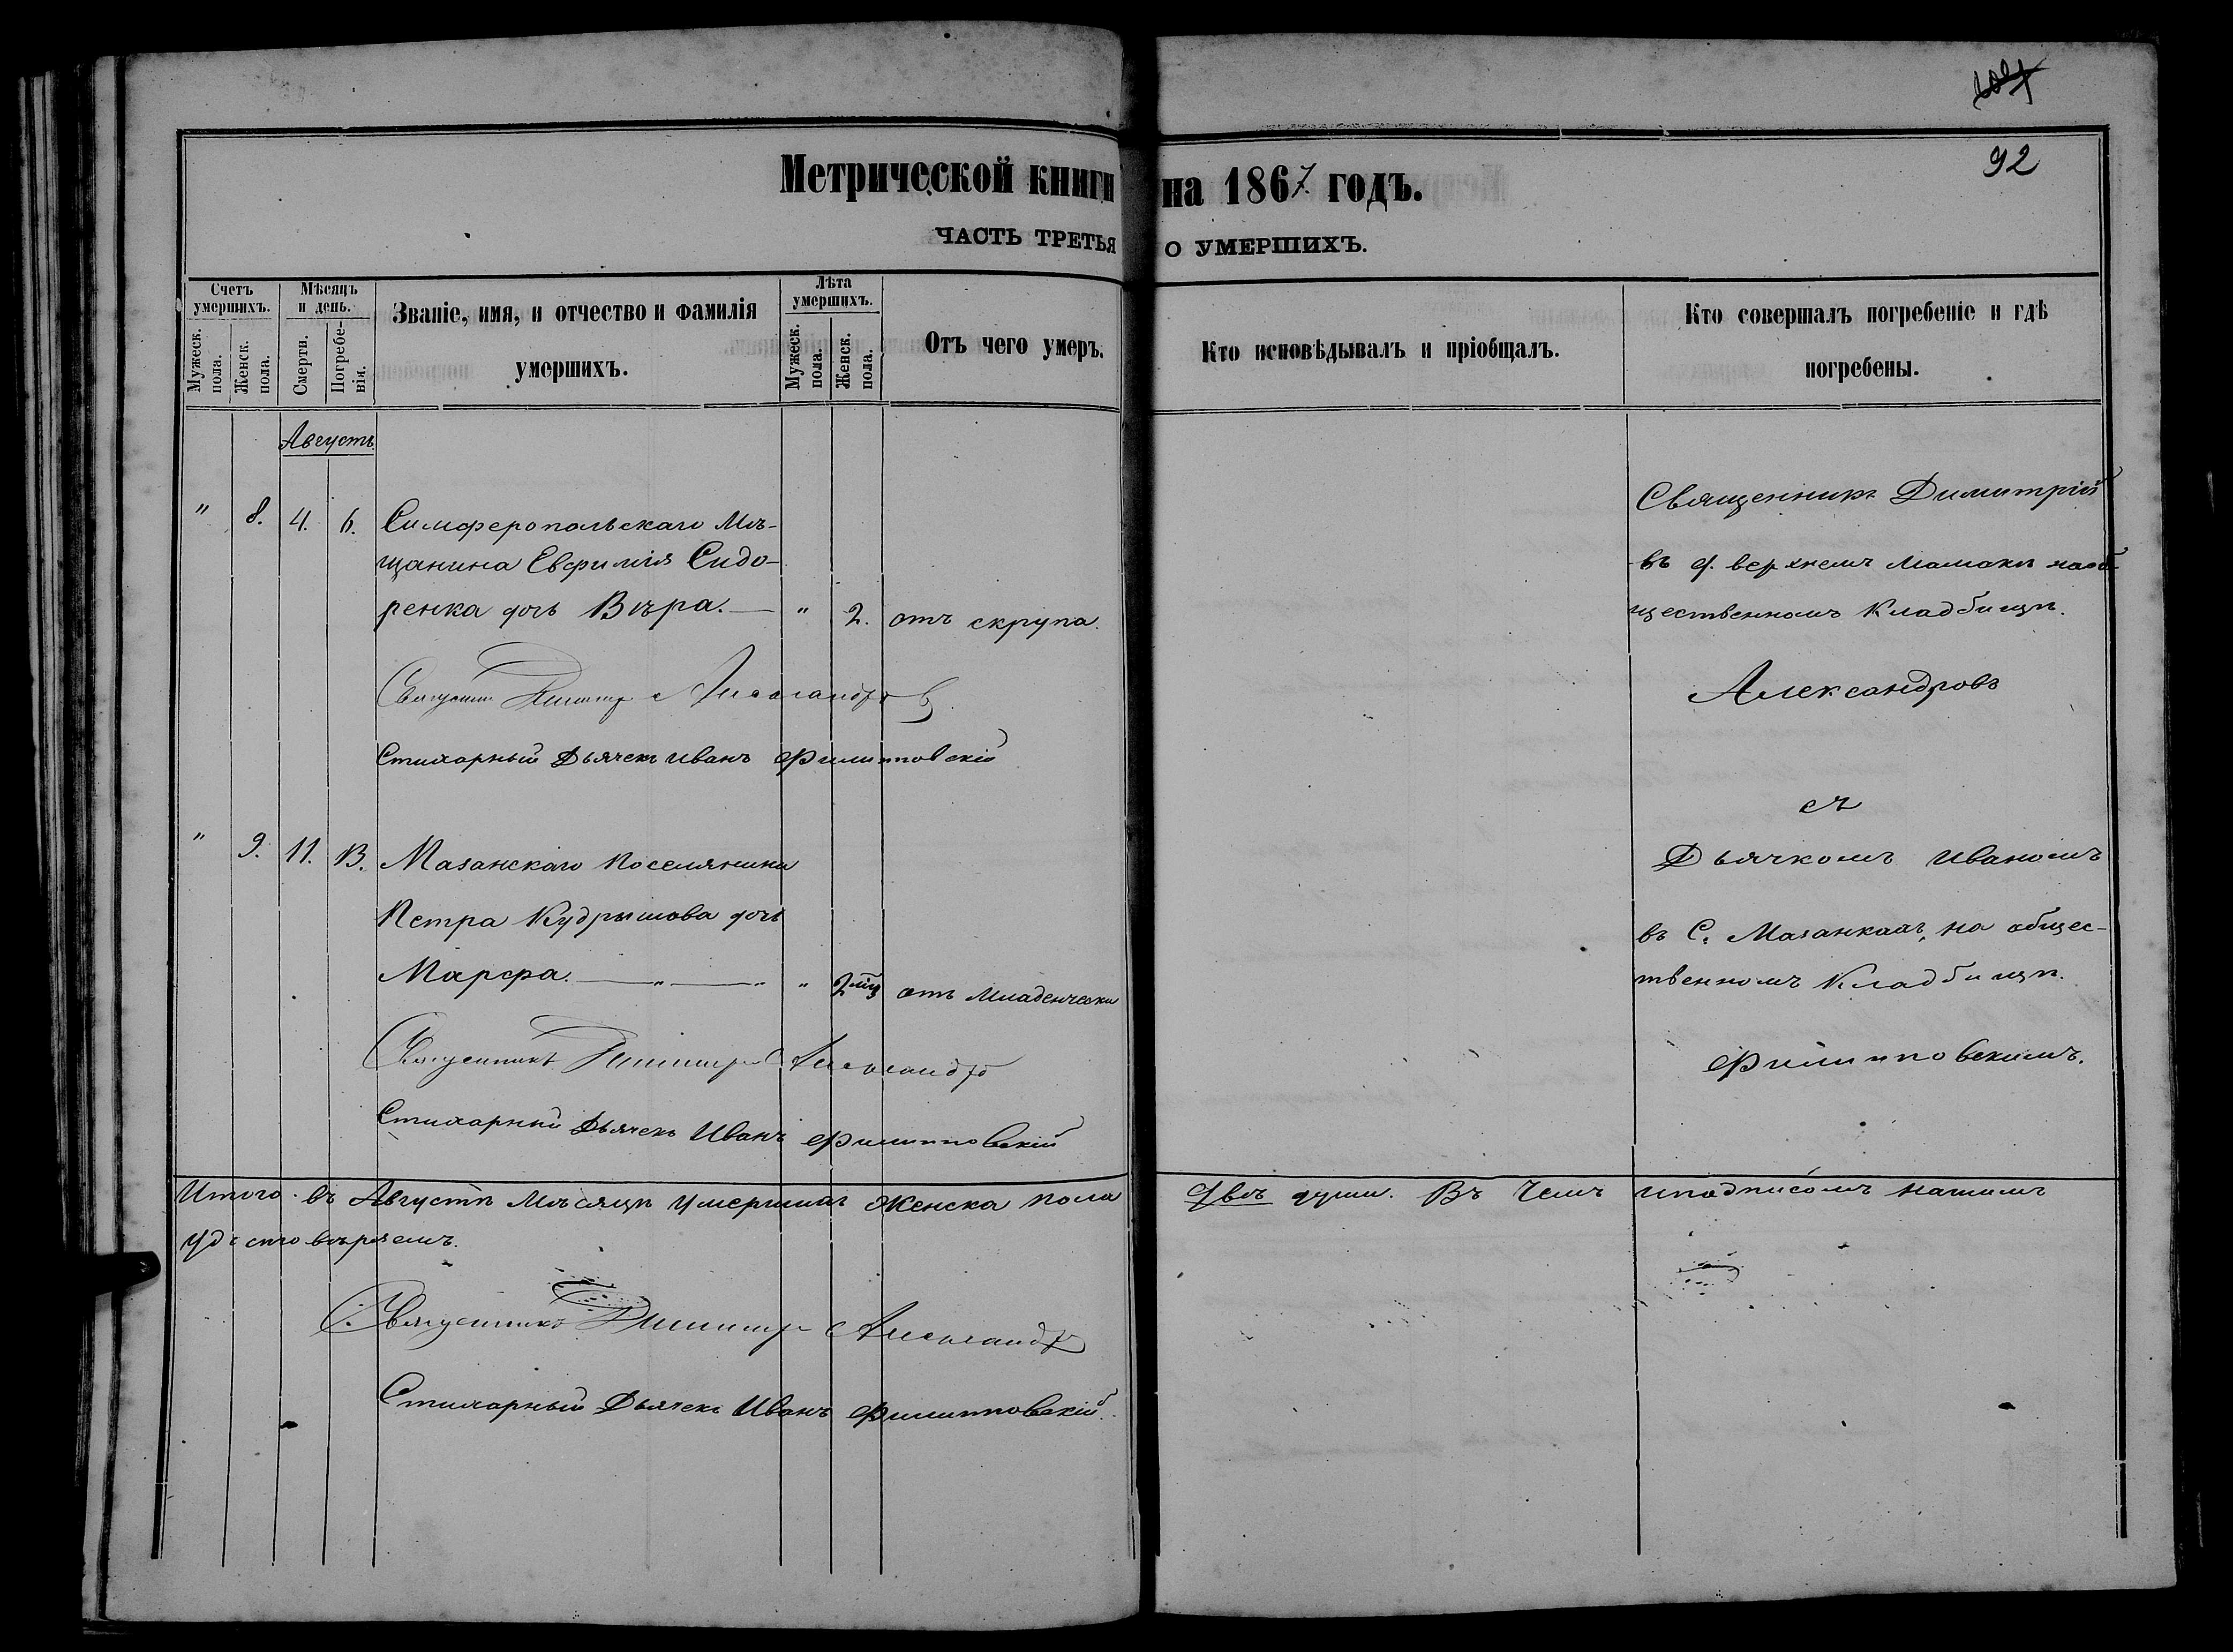 92
Метрической книги на 1867 годъ.
ЧАСТЬ ТРЕТЬЯ О УМЕРШИХЪ.
Счетъ умершихъ.
Мужеск. пола.
Женск. пола.
Мѣсяцъ и день.
Смерти.
Погребенія.
Званіе, имя, и отчество и фамилія
умершихъ.
Лѣта умершихъ.
Мужеск. пола.
Женск. пола.
Отъ чего умеръ.
Кто исповѣдывалъ и пріобщалъ.
Кто совершалъ погребеніе и гдѣ
погребены.
Августъ
" 8. 4. 6. Симферопольскаго Мѣ-
щанина Евфимія Сидо-
ренка дочь Вѣра. — " 2. отъ скрупа.
Священникъ Димитрій Александровъ
Стихарный Дьячекъ Иванъ Филипповскій
Священникъ Димитрій
въ д. верхнемъ Мамакѣ наоб-
щественномъ Кладбищѣ.
Александровъ
" 9. 11. 13. Мазанскаго Поселянина
Петра Кудрышова дочь
Марфа. — " — " " 2 мѣц отъ Младенчески
Священникъ Димитрій Александровъ
Стихарный Дьячекъ Иванъ Филипповскій
съ
Дьячкомъ Иваномъ
въ С. Мазанкахъ, на общес-
твенномъ Кладбищѣ.
Филипповскимъ.
Итого въ Августѣ Мѣсяцѣ умершихъ Женска пола двѣ души. Въ Чемъ иподписомъ нашимъ
удостовѣряемъ.
Священникъ Димитрій Александровъ
Стихарный Дьячекъ Иванъ Филипповскій.